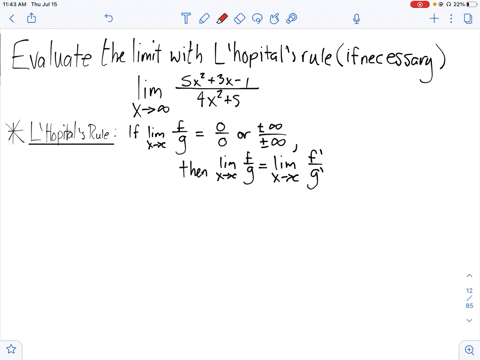 11:43 AM Thu Jul 15
22%
Evaluate the limit with L'hopital's rule (if necessary)
lim x→∞ 5x²+3x-1 / 4x²+5
* L'Hopital's Rule: If lim x→c f/g = 0/0 or ±∞/±∞,
then lim x→c f/g = lim x→c f'/g'
12
85